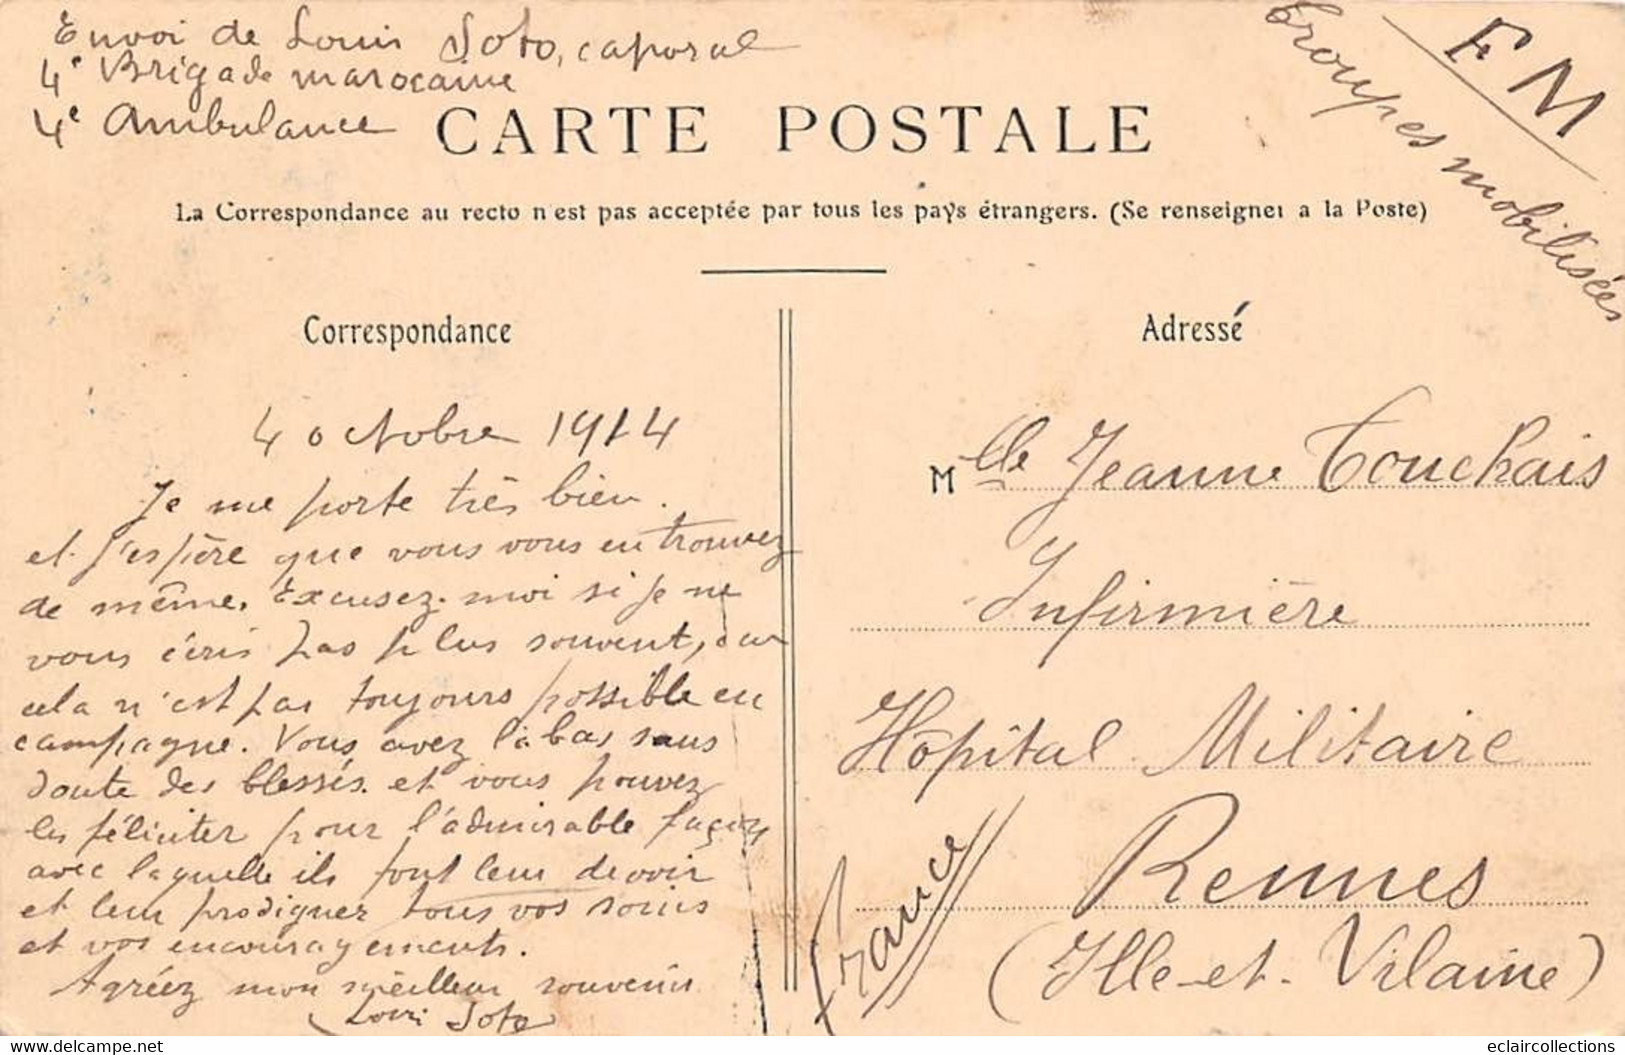 Envoi de Louis Soto, caporal
4e Brigade marocaine
4e Ambulance
FM
Troupes mobilisées
CARTE POSTALE
La Correspondance au recto n'est pas acceptée par tous les pays étrangers. (Se renseigner a la Poste)
Correspondance
4 octobre 1914
Je me porte très bien.
et j'espère que vous vous en trouvez
de même. Excusez-moi si je ne
vous écris pas plus souvent, car
cela n'est pas toujours possible en
campagne. Vous avez là bas sans
doute des blessés. et vous pouvez
les féliciter pour l'admirable façon
avec laquelle ils font leur devoir
et leur prodiguer tous vos soins
et vos encouragements.
Agréez mon meilleur souvenir
Louis Soto
Adressé
Mlle Jeanne Touchais
Infirmière
Hôpital Militaire
Rennes
(Ille-et-Vilaine)
France
www.delcampe.net
eclaircollections